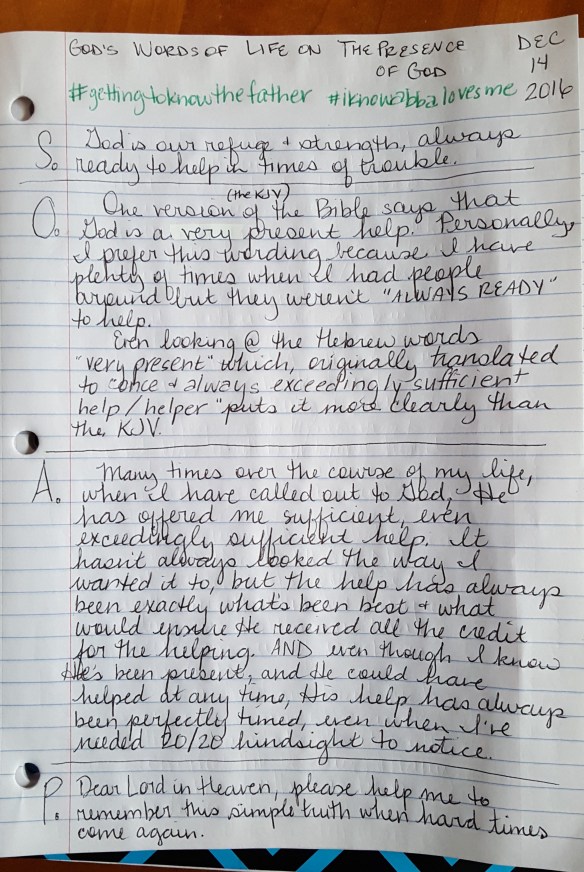 GOD'S WORDS OF LIFE ON THE PRESENCE OF GOD
DEC 14 2016
#gettingtoknowthefather #iknowabbalovesme
S. God is our refuge + strength, always
ready to help in times of trouble.
O. One version (the KJV) of the Bible says that
God is a very present help. Personally,
I prefer this wording because I have
plenty of times when I had people
around but they weren't "ALWAYS READY"
to help.
Even looking @ the Hebrew words
"very present" which, originally translated
to once + always exceedingly sufficient
help/helper "puts it more clearly than
the KJV.
A. Many times over the course of my life,
when I have called out to God, He
has offered me sufficient, even
exceedingly sufficient help. It
hasn't always looked the way I
wanted it to, but the help has always
been exactly what's been best + what
would ensure He received all the credit
for the helping. AND even though I know
He's been present, and He could have
helped at any time, His help has always
been perfectly timed, even when I've
needed 20/20 hindsight to notice.
P. Dear Lord in Heaven, please help me to
remember this simple truth when hard times
come again.